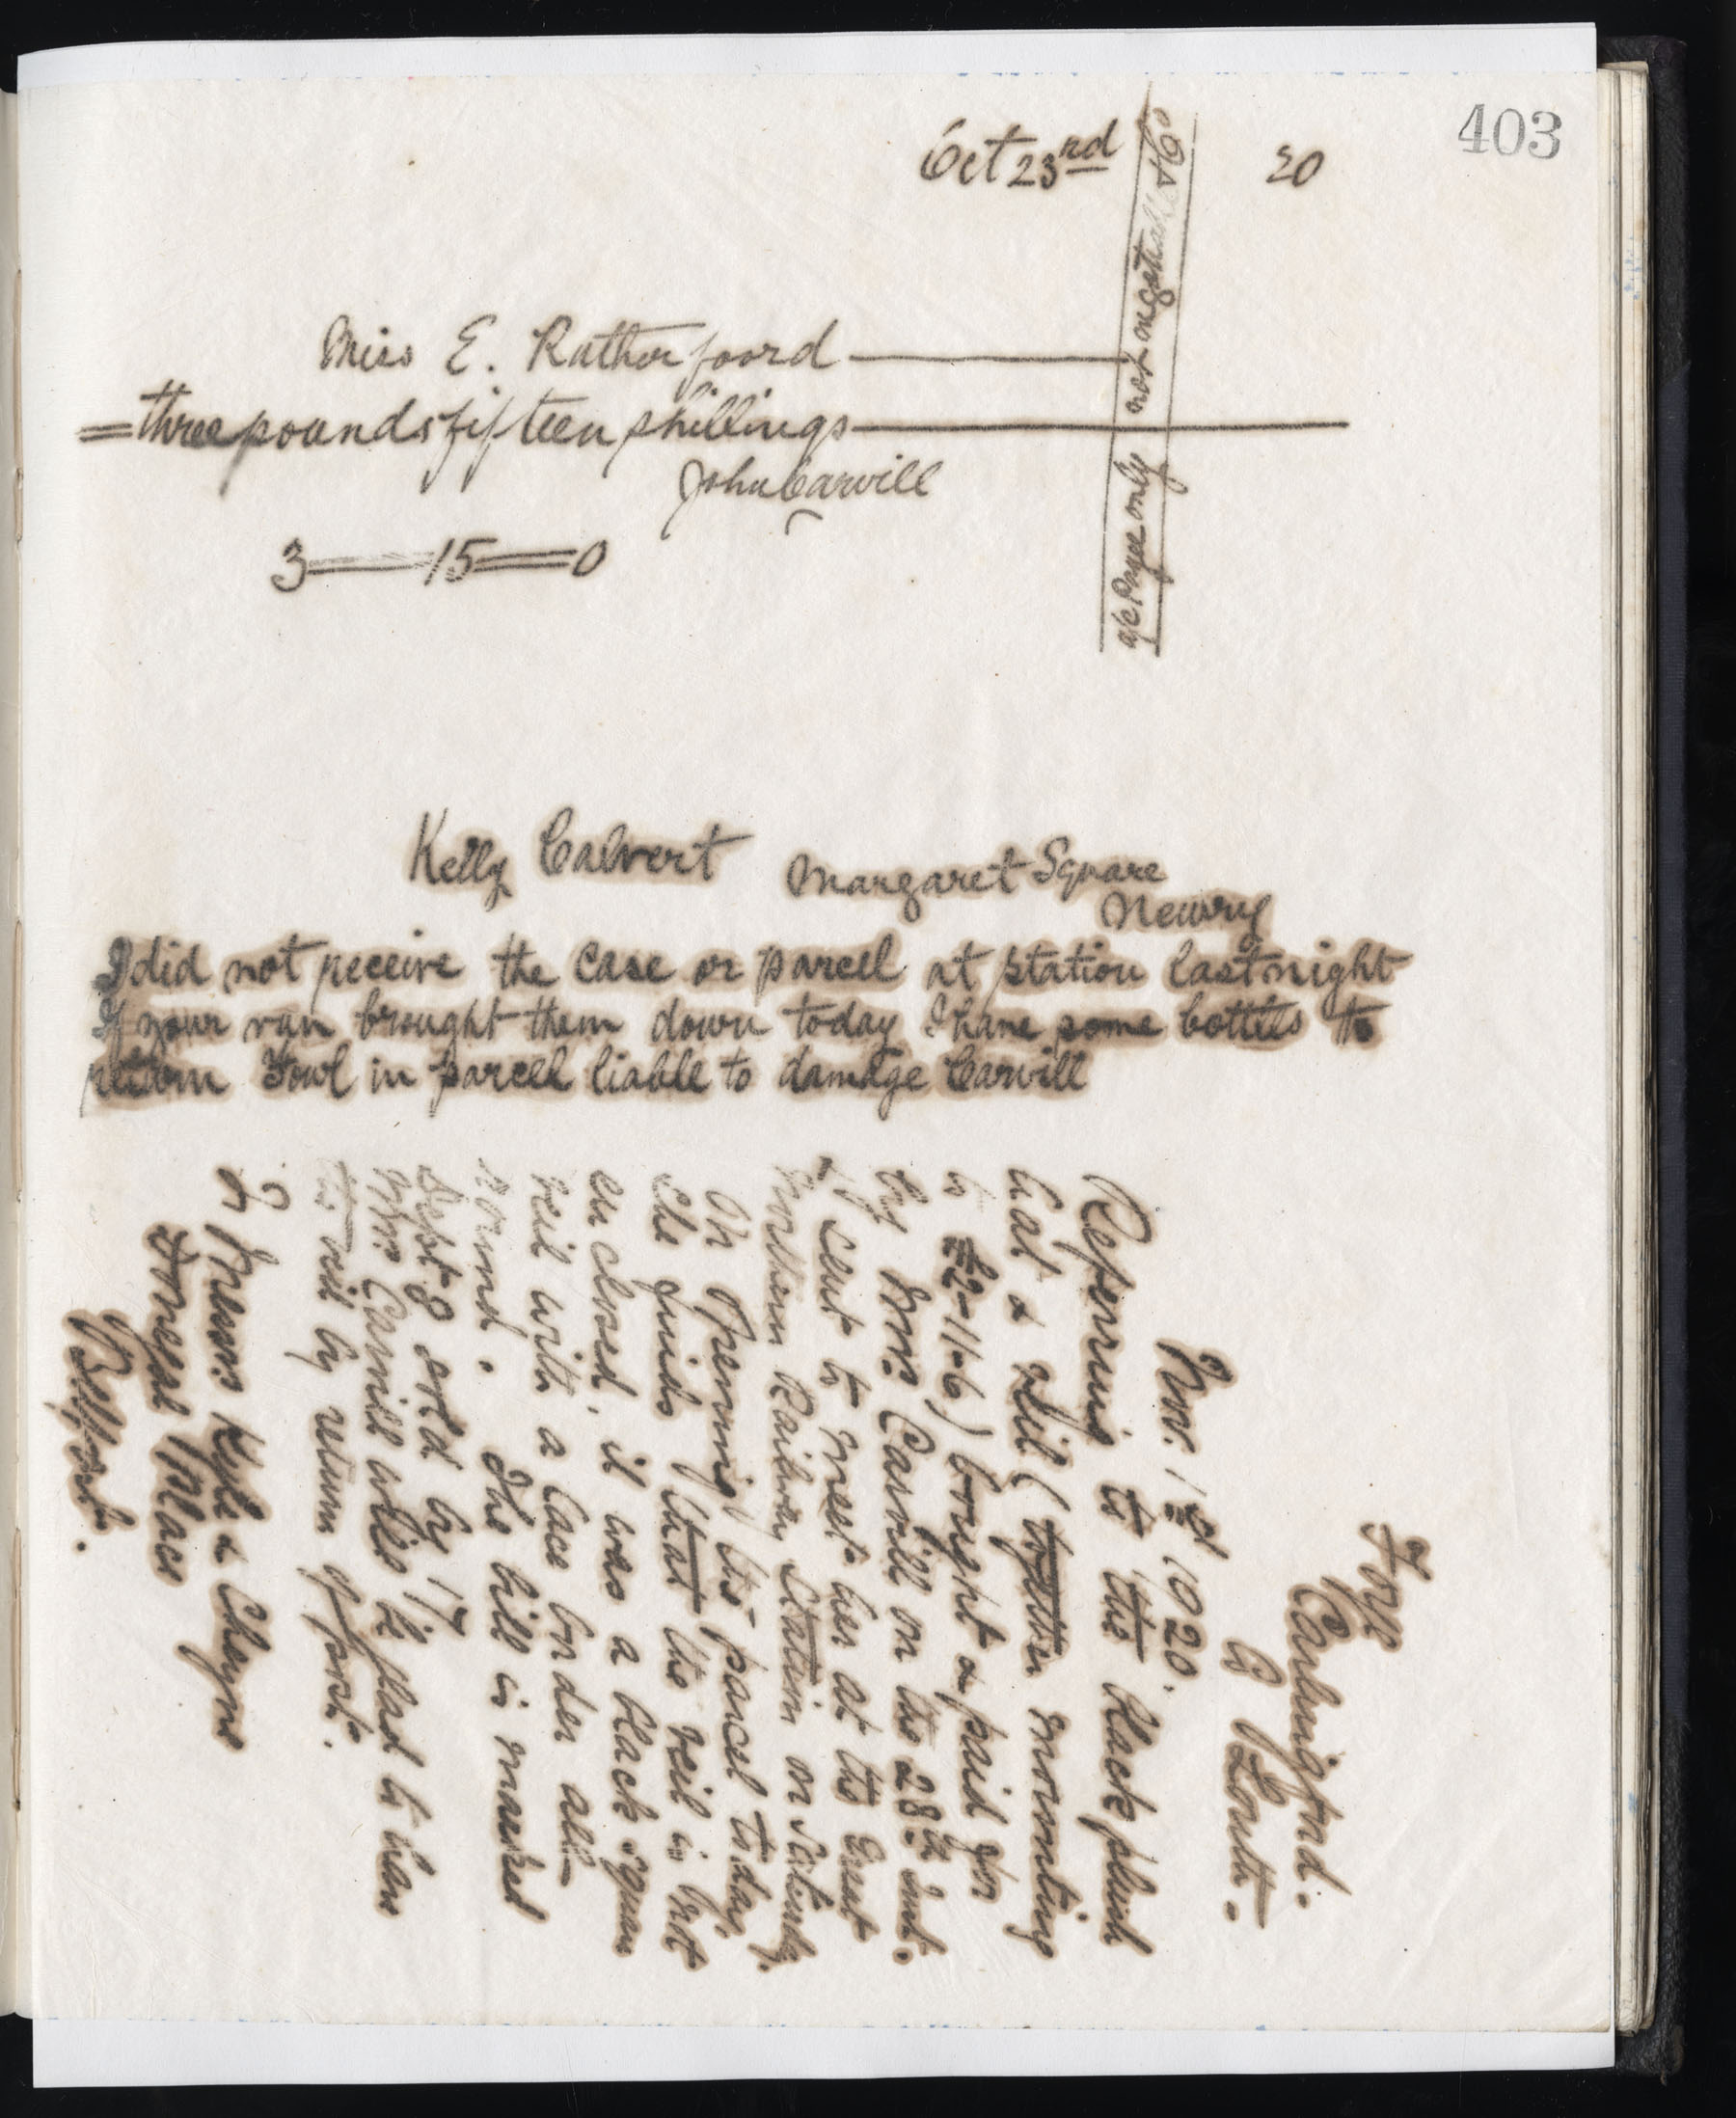 403
Oct 23rd 20
& Co
a/c Payee only not negotiable
Miss E. Rutherfoord
= three pounds fifteen shillings
John Carvill
3 = 15 = 0
Kelly Calvert Margaret Square
Newry
I did not receive the case or parcel at station last night
If your van brought them down today I have some bottles to
return Fowl in parcel liable to damage Carvill
Carlingford.
Co Louth.
Nov. 1st 1920.
Referring to the black plush
hat & veil (together amounting
to £2-11-6) bought & paid for
by Mrs Carvill on the 28th inst.
& sent to meet her at the Great
Northern Railway Station on Saturday.
On opening the parcel today,
she finds that the veil is not
enclosed. it was a black square
veil with a lace border all
round. The bill is marked
Sept 8 sold by 17
Mrs Carvill will be glad to have
the veil by return of post.
To Messrs Kyle & Cheyne
Donegal Place
Belfast.